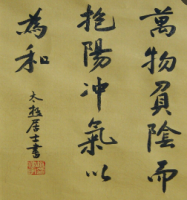 萬物負陰而
抱陽沖氣以
為和
太極居士書